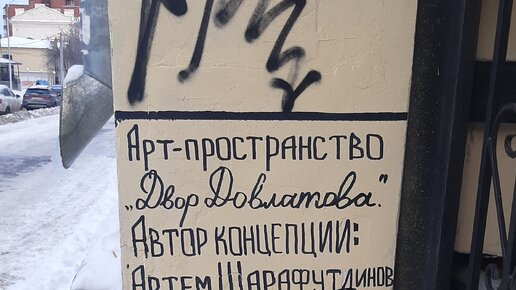 Арт-пространство
„Двор Довлатова."
Автор концепции:
Артем Шарафутдинов